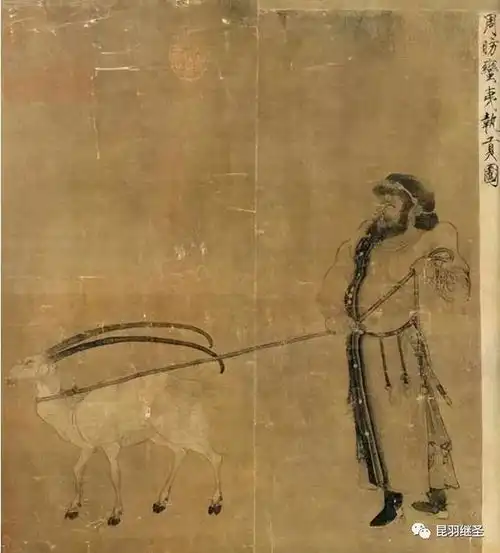 周昉蠻夷執貢圖
昆羽继圣